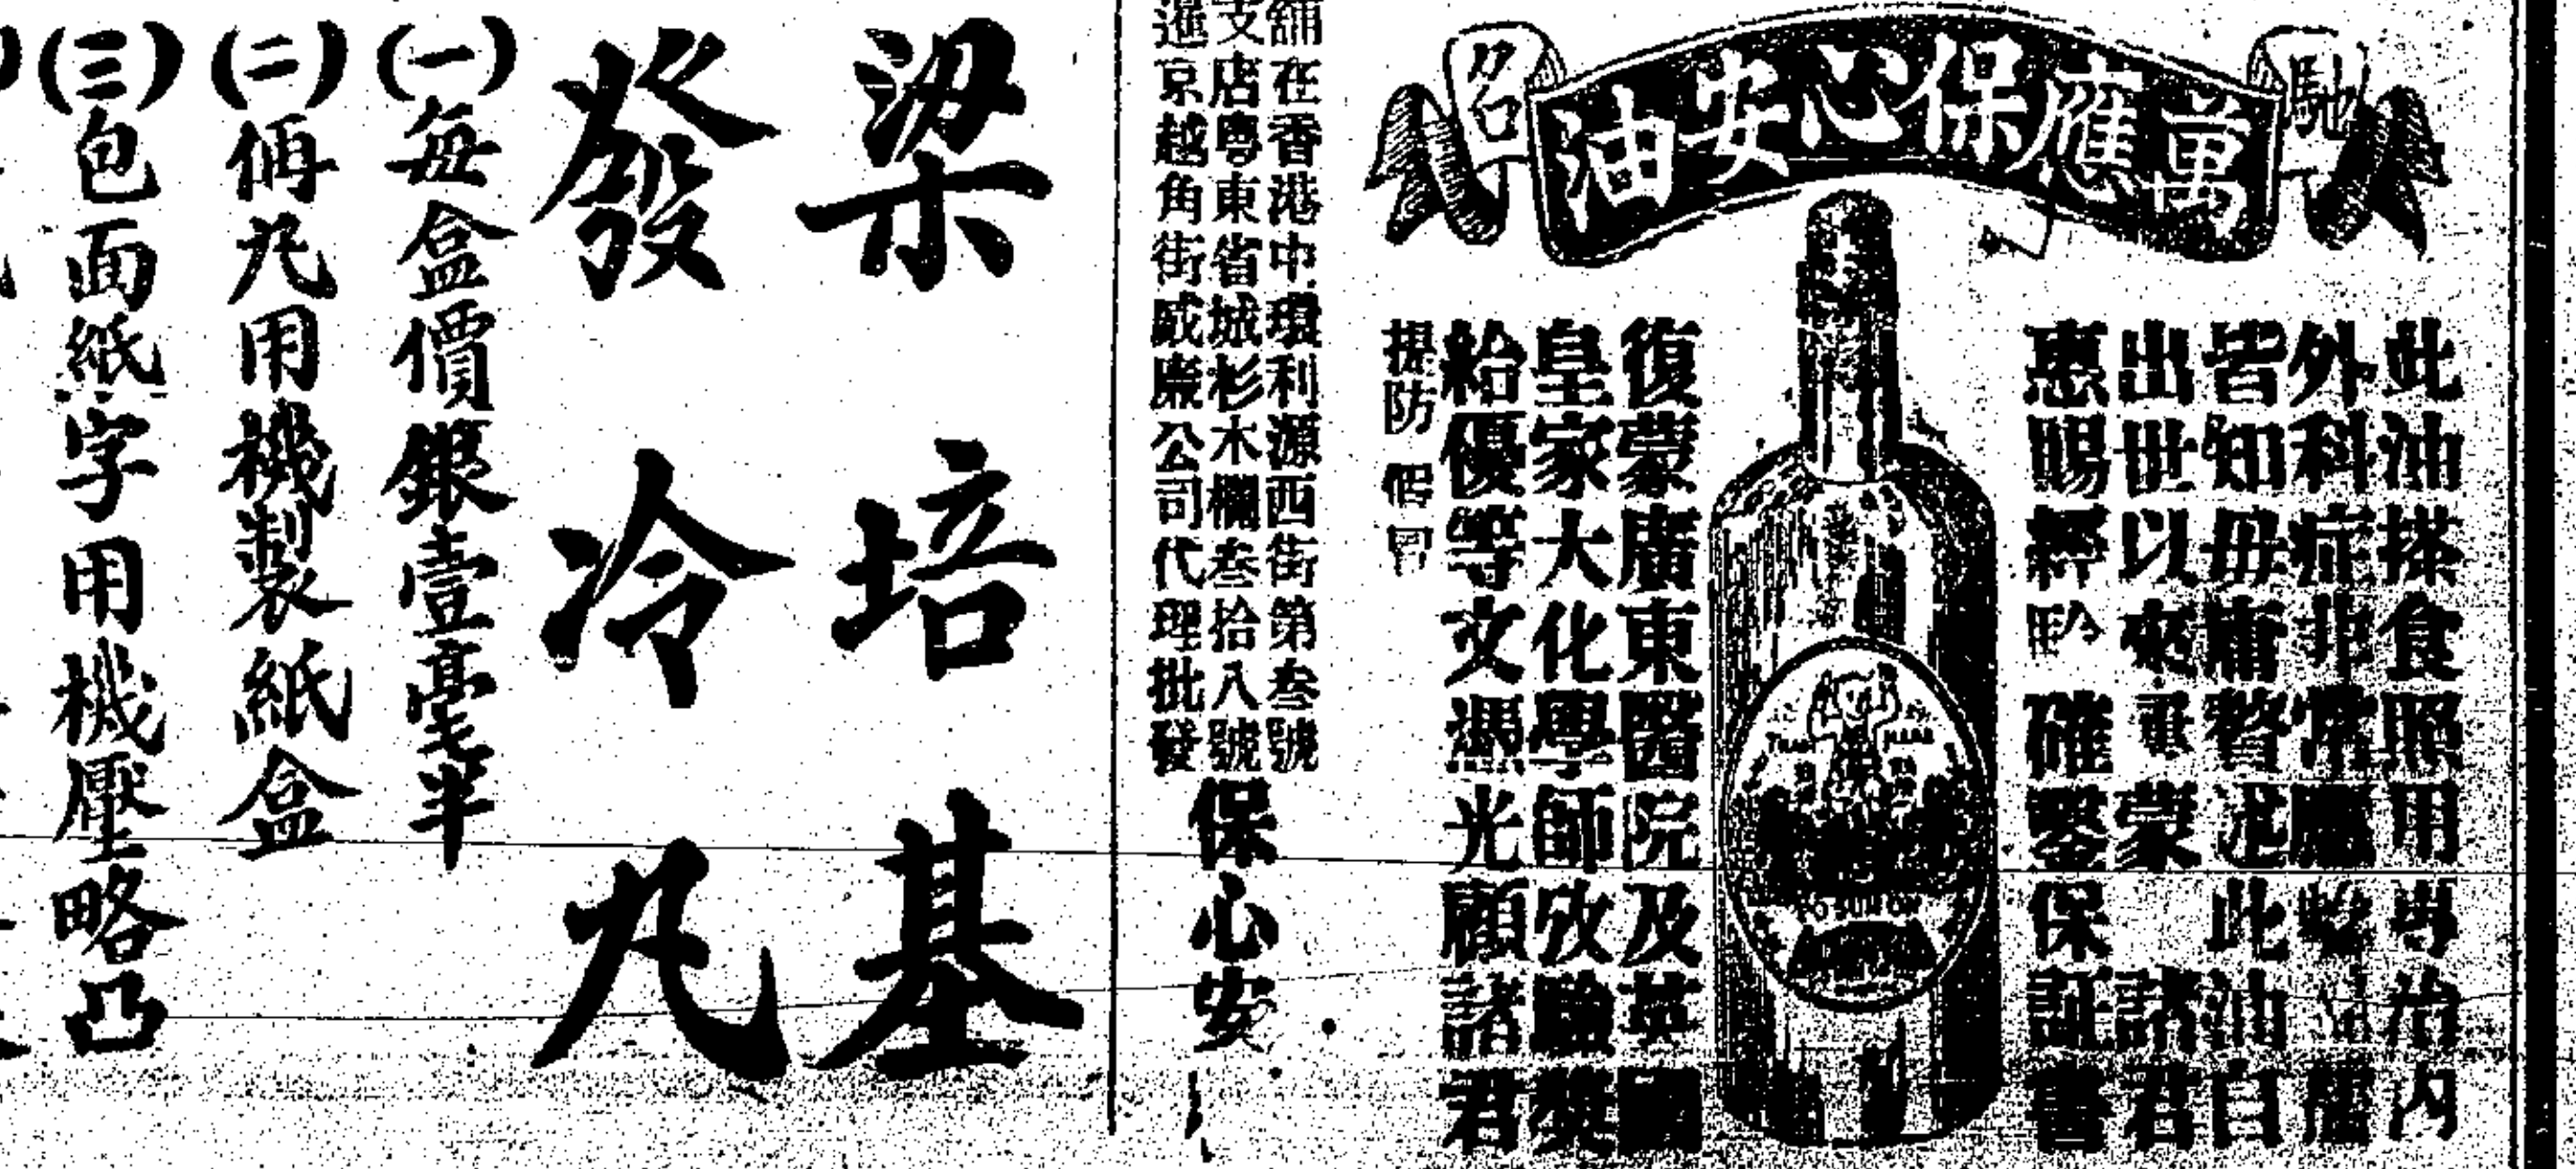 馳名
萬應保心安油
此油搽食照用專治內
外科症非常靈
皆知毋庸贅述此油自
出世以來重蒙諸君
惠賜經驗確鑿保証書
復蒙廣東醫院及英國
皇家大化學師攷驗奬
給優等文憑光顧諸君
提防假冒
TRADE MARK
舖在香港中環利源西街第叁號
支店粵東省城杉木欄叁拾八號
暹京越角街威廉公司代理批發
保心安
梁培基
發冷丸
(一)每盒價銀壹毫半
(二)俻丸用機製紙盒
(三)包面紙字用機壓略凸